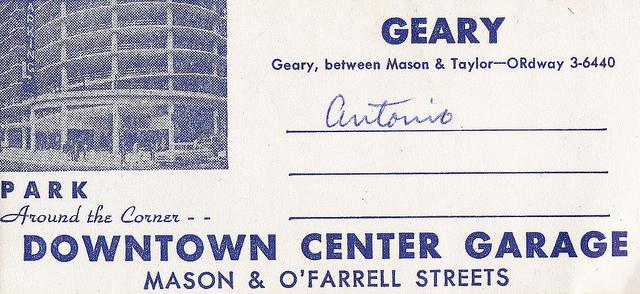 PARKING
GEARY
Geary, between Mason & Taylor—ORdway 3-6440
Antonio
PARK
Around the Corner - -
DOWNTOWN CENTER GARAGE
MASON & O'FARRELL STREETS